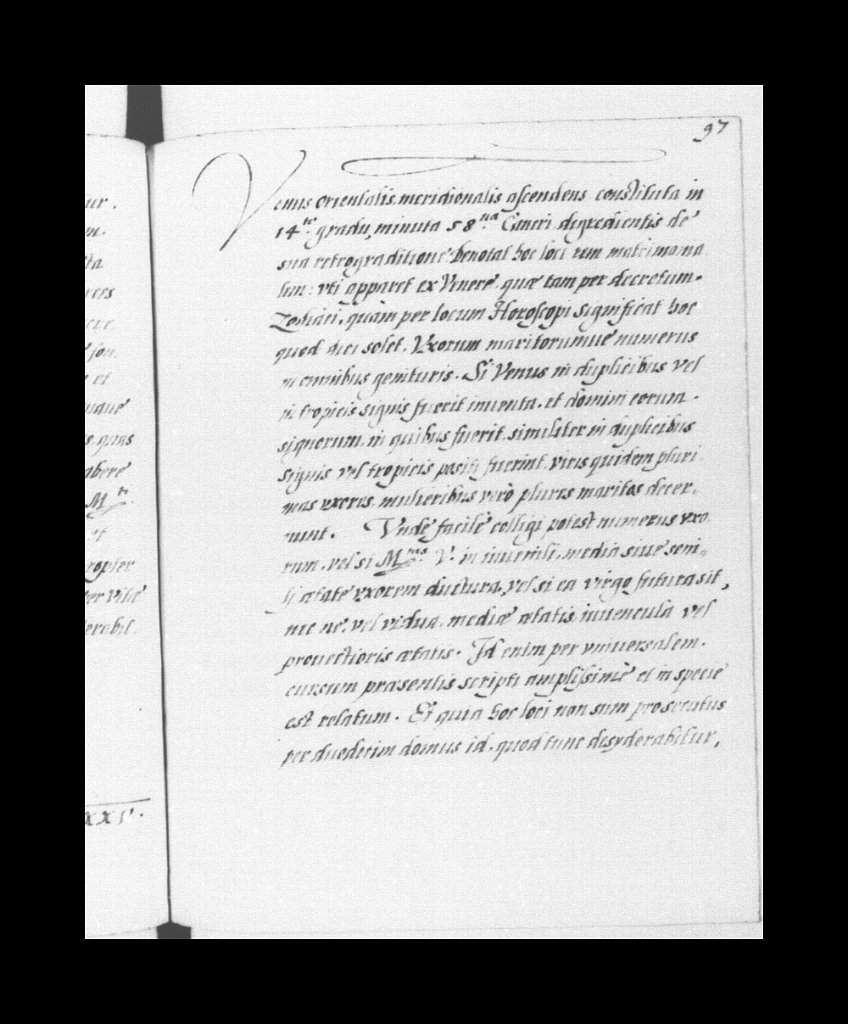 97
Venus orientalis meridionalis ascendens constituta in
14.to gradu, minuta 58.na Cancri digredientis de
sua retrograditione denotat hoc loci rem matrimonia
lem: vti apparet ex Venere, quæ tam per decretum
Zodiaci, quàm per locum Horoscopi significat hoc
quod dici solet. Vxorum maritorumue numerus
in omnibus genituris. Si Venus in duplicibus vel
in tropicis signis fuerit inuenta, et domini eorum
signorum, in quibus fuerit, similiter in duplicibus
signis vel tropicis positi fuerint, viris quidem pluri
mas vxores, mulieribus verò plures maritos decer,
nunt. Vnde facilè colligi potest numerus vxo
rum, vel si M.tas V. in iuuenili, media siue seni,,
li ætate vxorem ductura, vel si ea virgo futura sit,
nec ne, vel vidua, mediæ ætatis, iuuencula vel
prouectioris ætatis. Id enim per vniuersalem
cursum præsentis scripti amplissimè et in specie
est relatum. Et quia hoc loci non sum prosecutus
per duodecim domus id, quod tunc desyderabitur,
ur.
m.
ta
rers
ere
jou
et
uque
s quas
abere
M.ti
et
ropter
er vitæ
erabil
xxv.